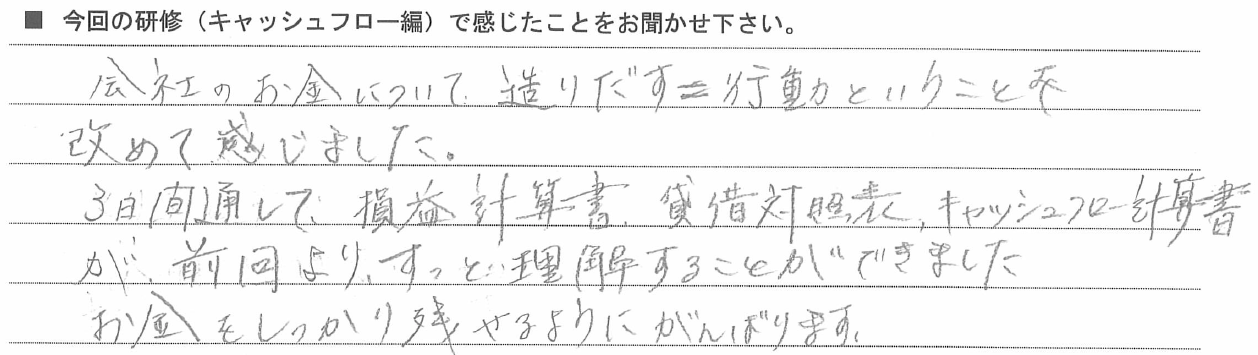 ■ 今回の研修（キャッシュフロー編）で感じたことをお聞かせ下さい。
会社のお金について、造りだす＝行動ということを
改めて感じました。
3日間通して、損益計算書、貸借対照表、キャッシュフロー計算書
が、前回より、すっと理解することができました
お金をしっかり残せるようにがんばります。